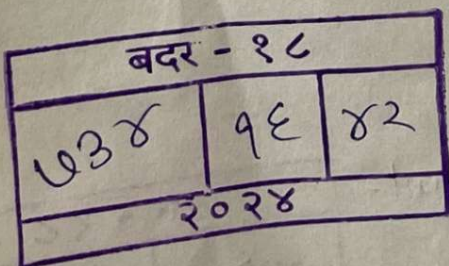 बदर - १८
७३४ १६ ४२
२०२४